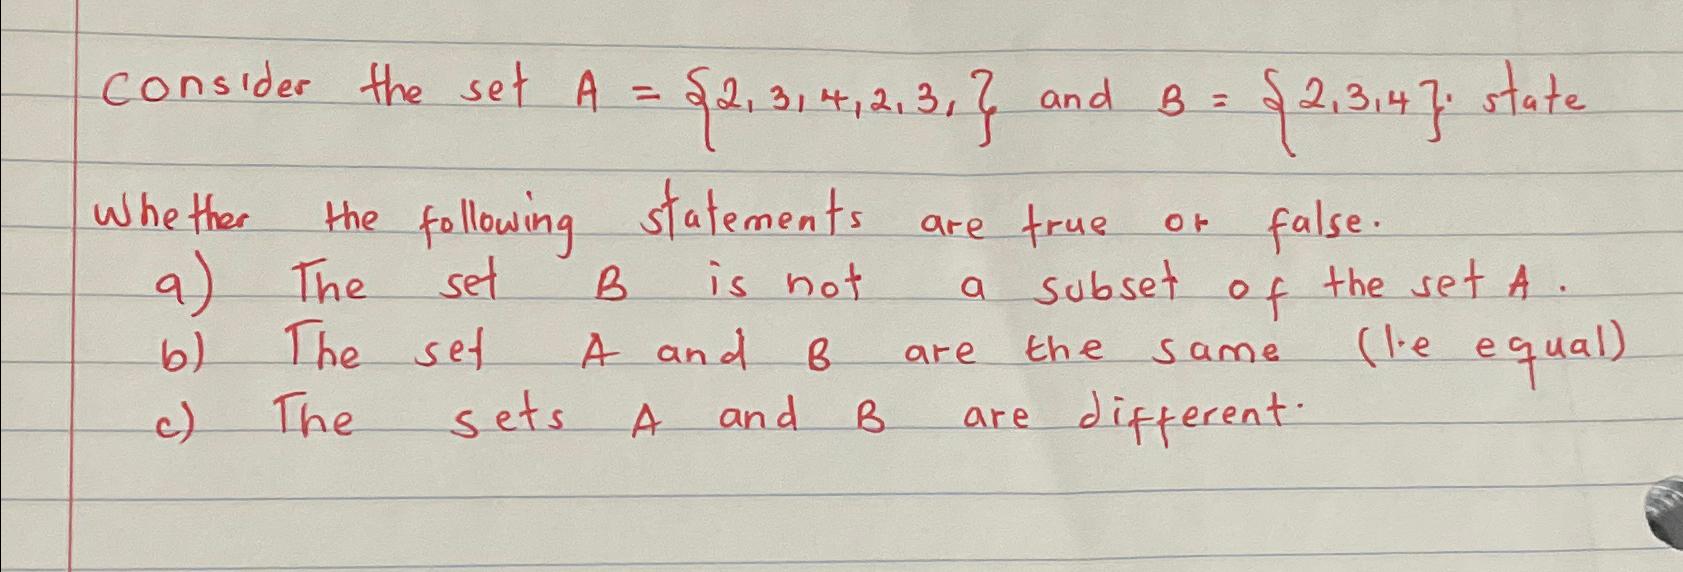 consider the set A = {2, 3, 4, 2, 3, } and B = {2, 3, 4}. state
Whether the following statements are true or false.
a) The set B is not a subset of the set A.
b) The set A and B are the same (i.e equal)
c) The sets A and B are different.